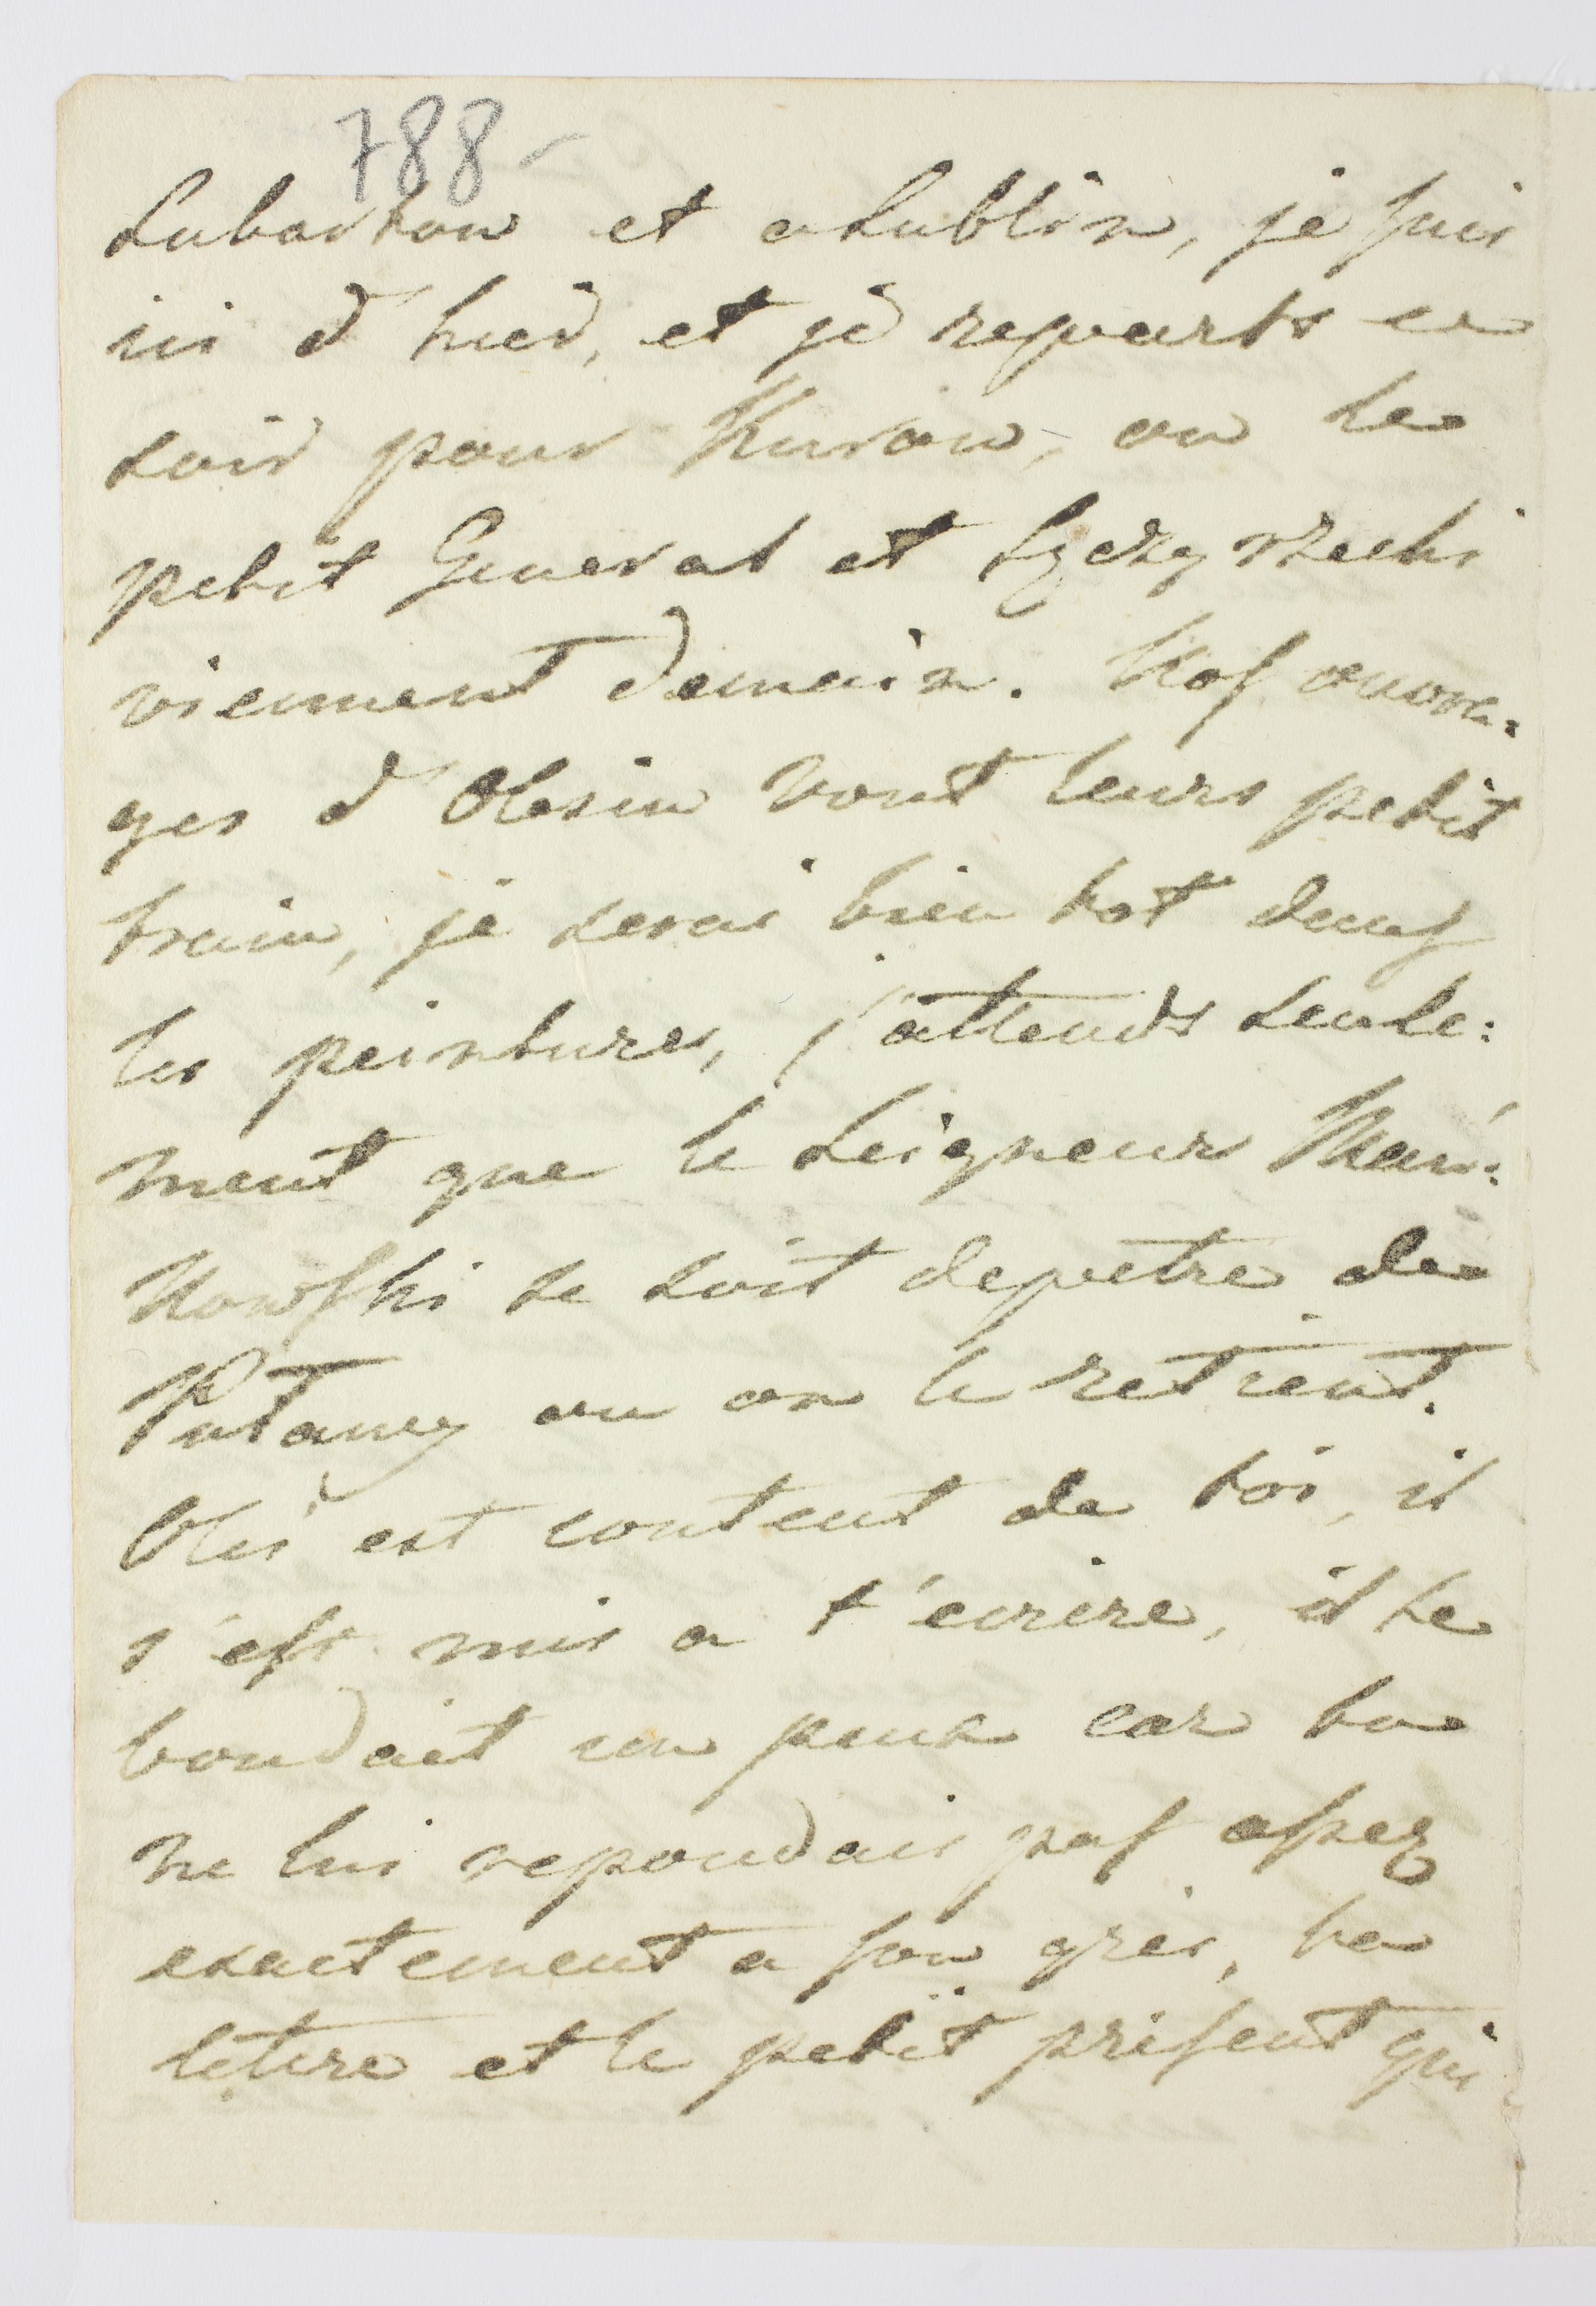 788-
Lubartow et a Lublin, je suis
ici d hier, et je reparts ce
soir pour Kurow, ou le
petit General et
viennent demain. Nos ouvra:
ges d Olesin vont leurs petit
train, je serai bien tot dans
les peintures, j'attends seule:
ment que le Seigneur
se soit depetre de
Pulawy ou on le retient.
Oleś est content de toi, il
s'est mis a t'ecrire, il te
boudait un peux car tu
ne lui repondais pas assez
exactement a son gres, ta
lettre et le petit present qui